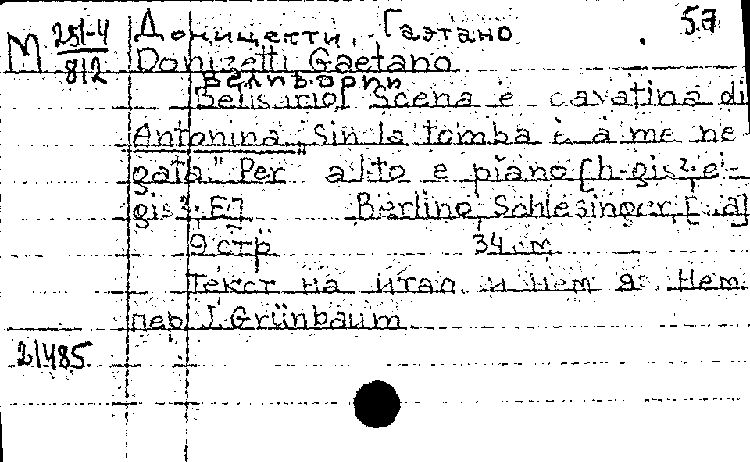 Доницетти, Гаэтано 57
М 251-4/812 Donizetti Gaetano
[Belisario] Scena e cavatina di
Antonina „Sin la tomba è a me ne
gata." Per alto e piano [h-gis²; e-
gis²; E] Berlino, Schlesinger [
9 стр 34 cm
Текст на итал и нем яз. Нем.
пер J. Grünbaum
21485